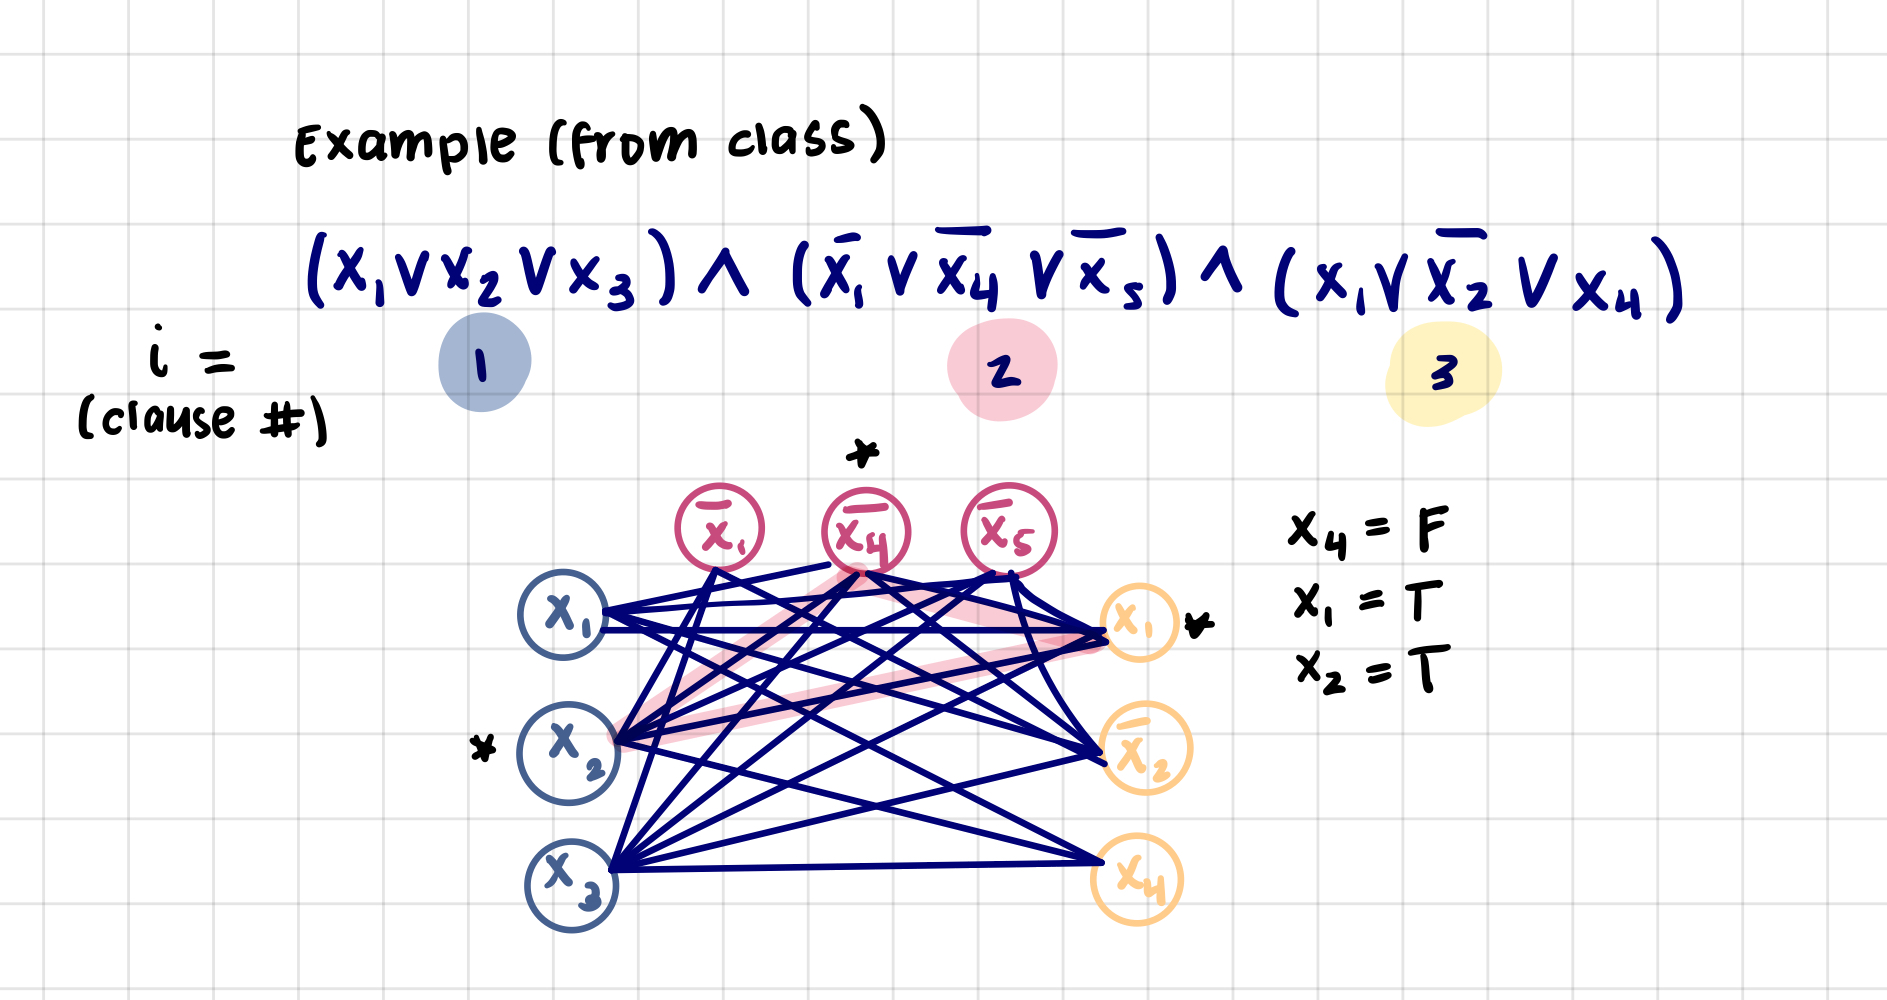 Example (from class)
(x₁ ∨ x₂ ∨ x₃) ∧ (x̅₁ ∨ x̅₄ ∨ x̅₅) ∧ (x₁ ∨ x̅₂ ∨ x₄)
i = 1 2 3
(clause #)
*
x̅₁ x̅₄ x̅₅
x₁ x₁ *
* x₂ x̅₂
x₃ x₄
x₄ = F
x₁ = T
x₂ = T